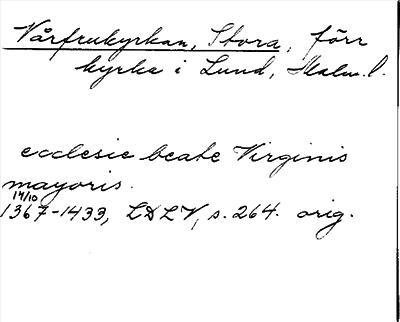 Vårfrukyrkan, Stora, förr
kyrka i Lund, Malm.l.
ecclesie beate Virginis
mayoris.
14/10
1367-1433, LDLV, s. 264. orig.